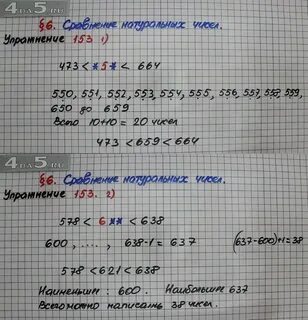 4 DA 5.RU
§6. Сравнение натуральных чисел.
Упражнение 153 1)
473 < *5* < 664
550, 551, 552, 553, 554, 555, 556, 557, 558, 559,
650 до 659
Всего 10+10 = 20 чисел
473 < 659 < 664
4 DA 5.RU
§6. Сравнение натуральных чисел.
Упражнение 153. 2)
578 < 6** < 638
600, ...., 638-1 = 637 (637-600)+1=38
578 < 621 < 638
Наименьшее: 600. Наибольшее 637
Всего можно написать 38 чисел.